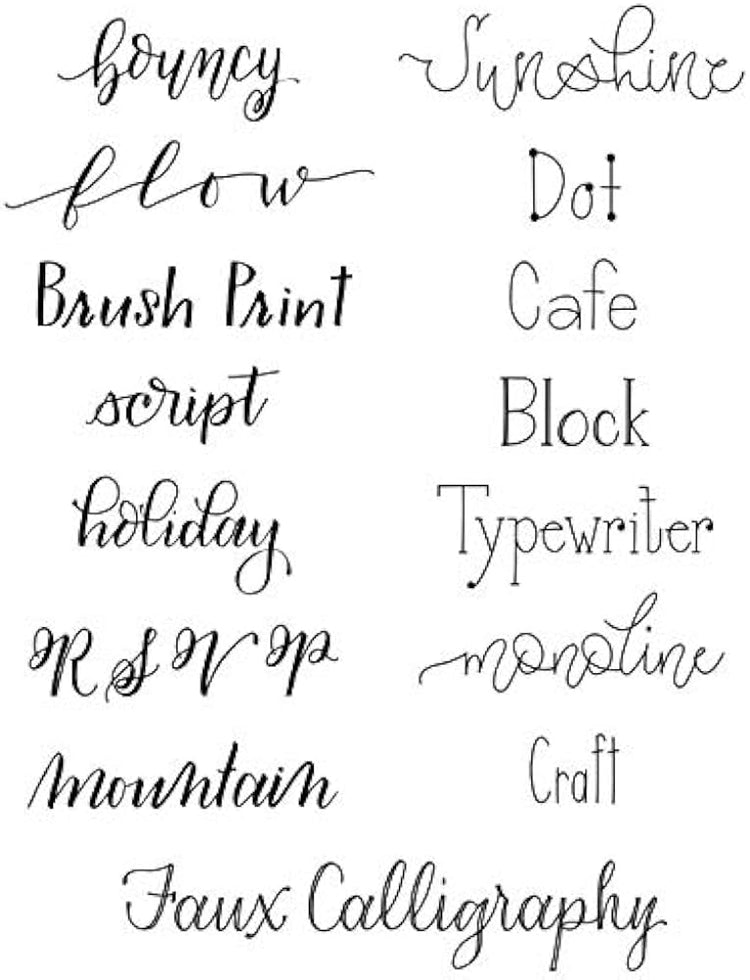 bouncy
Sunshine
flow
Dot
Brush Print
Cafe
script
Block
holiday
Typewriter
RSVP
monoline
mountain
Craft
Faux Calligraphy